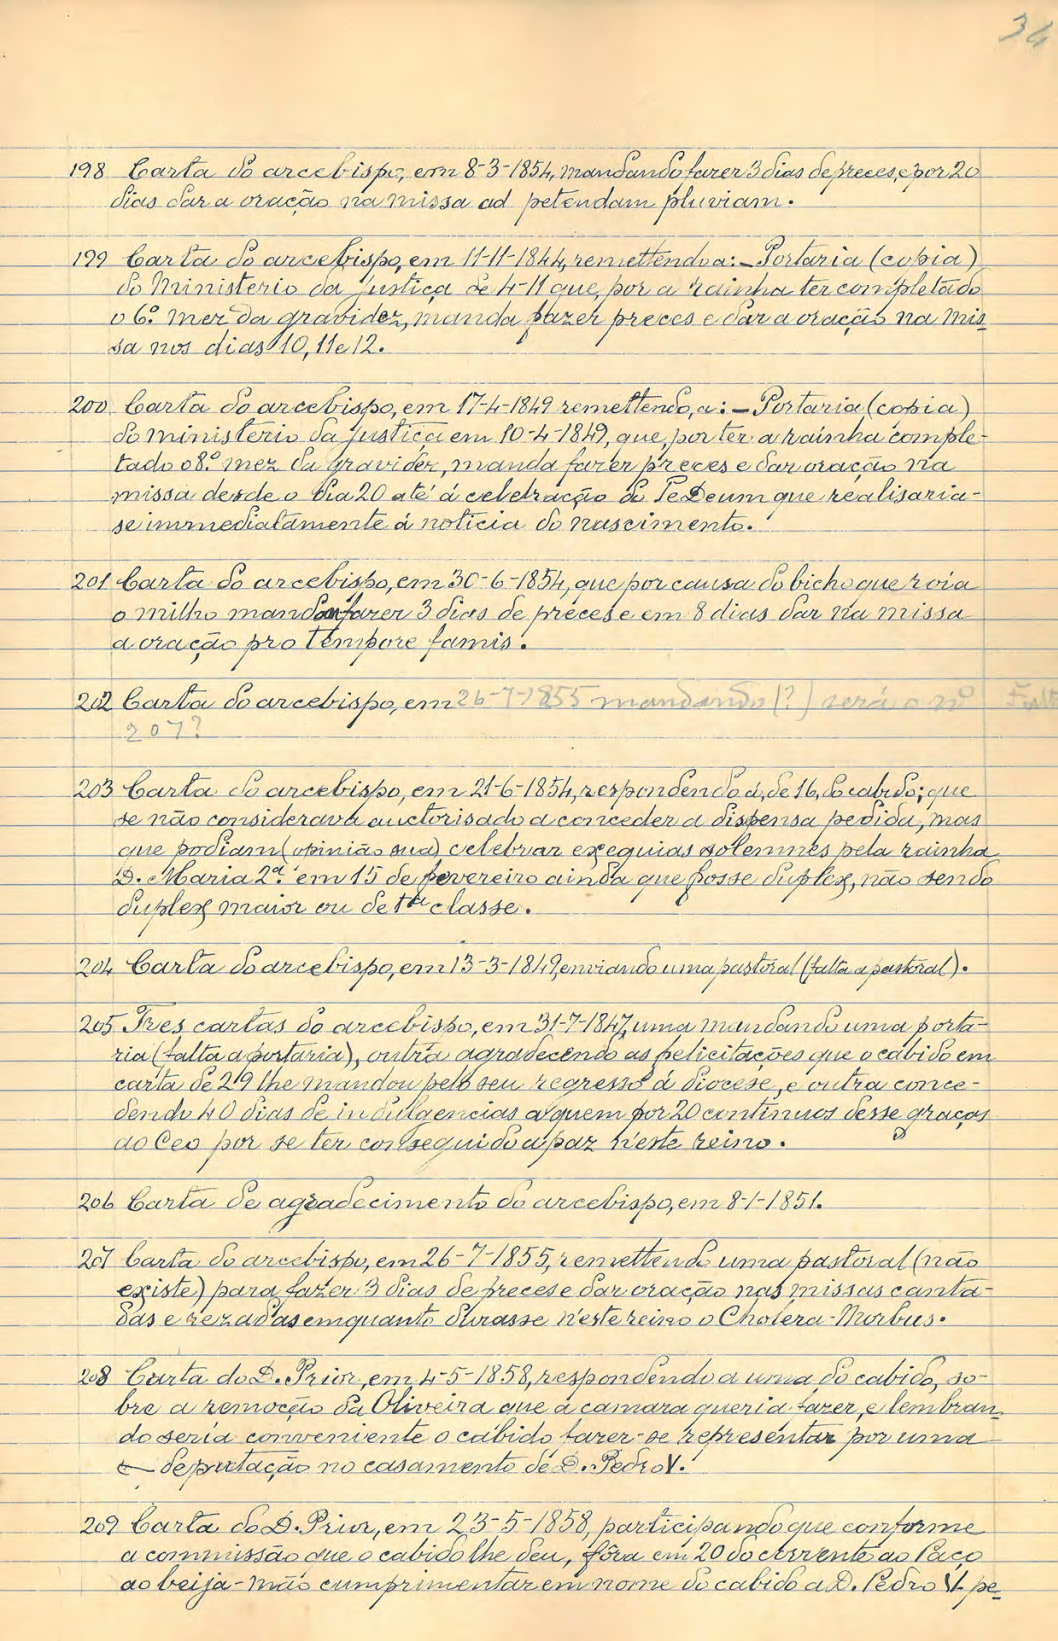 34
198 Carta do arcebispo, em 8-3-1854, mandando fazer 3 dias de preces, e por 20
dias dar a oração na missa ad petendam pluviam.
199 Carta do arcebispo, em 11-11-1844, remettendo a: - Portaria (copia)
do Ministerio da Justiça de 4-11 que, por a rainha ter completado
o 6º mez da gravidez, manda fazer preces e dar a oração na mis-
sa nos dias 10, 11 e 12.
200 Carta do arcebispo, em 17-4-1849 remettendo, a: - Portaria (copia)
do ministerio da justiça em 10-4-1849, que, por ter a rainha comple-
tado o 8º mez da gravidez, manda fazer preces e dar oração na
missa desde o dia 20 até á celebração do Te Deum que realisaria-
se immediatamente á noticia do nascimento.
201 Carta do arcebispo, em 30-6-1854, que por causa do bicho que roia
o milho mandou fazer 3 dias de preces e em 8 dias dar na missa
a oração pro tempore famis.
202 Carta do arcebispo, em 26-7-1855 mandando (?) será o nº
207?
203 Carta do arcebispo, em 21-6-1854, respondendo á, de 16, do cabido; que
se não considerava auctorisado a conceder a dispensa pedida, mas
que podiam (opinião sua) celebrar exequias solemnes pela rainha
D. Maria 2ª em 15 de fevereiro ainda que fosse duplex, não sendo
duplex maior ou de 1ª classe.
204 Carta do arcebispo, em 13-3-1849, enviando uma pastoral (falta a pastoral).
205 Tres cartas do arcebispo, em 31-7-1847, uma mandando uma porta-
ria (falta a portaria), outra agradecendo as felicitações que o cabido em
carta de 29 lhe mandou pelo seu regresso á diocese, e outra conce-
dendo 40 dias de indulgencias a quem por 20 continuos desse graças
ao Ceo por se ter conseguido a paz n'este reino.
206 Carta de agradecimento do arcebispo, em 8-1-1851.
207 Carta do arcebispo, em 26-7-1855, remettendo uma pastoral (não
existe) para fazer 3 dias de preces e dar oração nas missas canta-
das e rezadas emquanto durasse n'este reino o Cholera-Morbus.
208 Carta do D. Prior, em 4-5-1858, respondendo a uma do cabido, so-
bre a remoção da Oliveira que a camara queria fazer, e lembran-
do seria conveniente o cabido fazer-se representar por uma
deputação no casamento de D. Pedro V.
209 Carta do D. Prior, em 23-5-1858, participando que conforme
a commissão que o cabido lhe deu, fôra em 20 do corrente ao Paço
ao beija-mão cumprimentar em nome do cabido a D. Pedro V. pe-